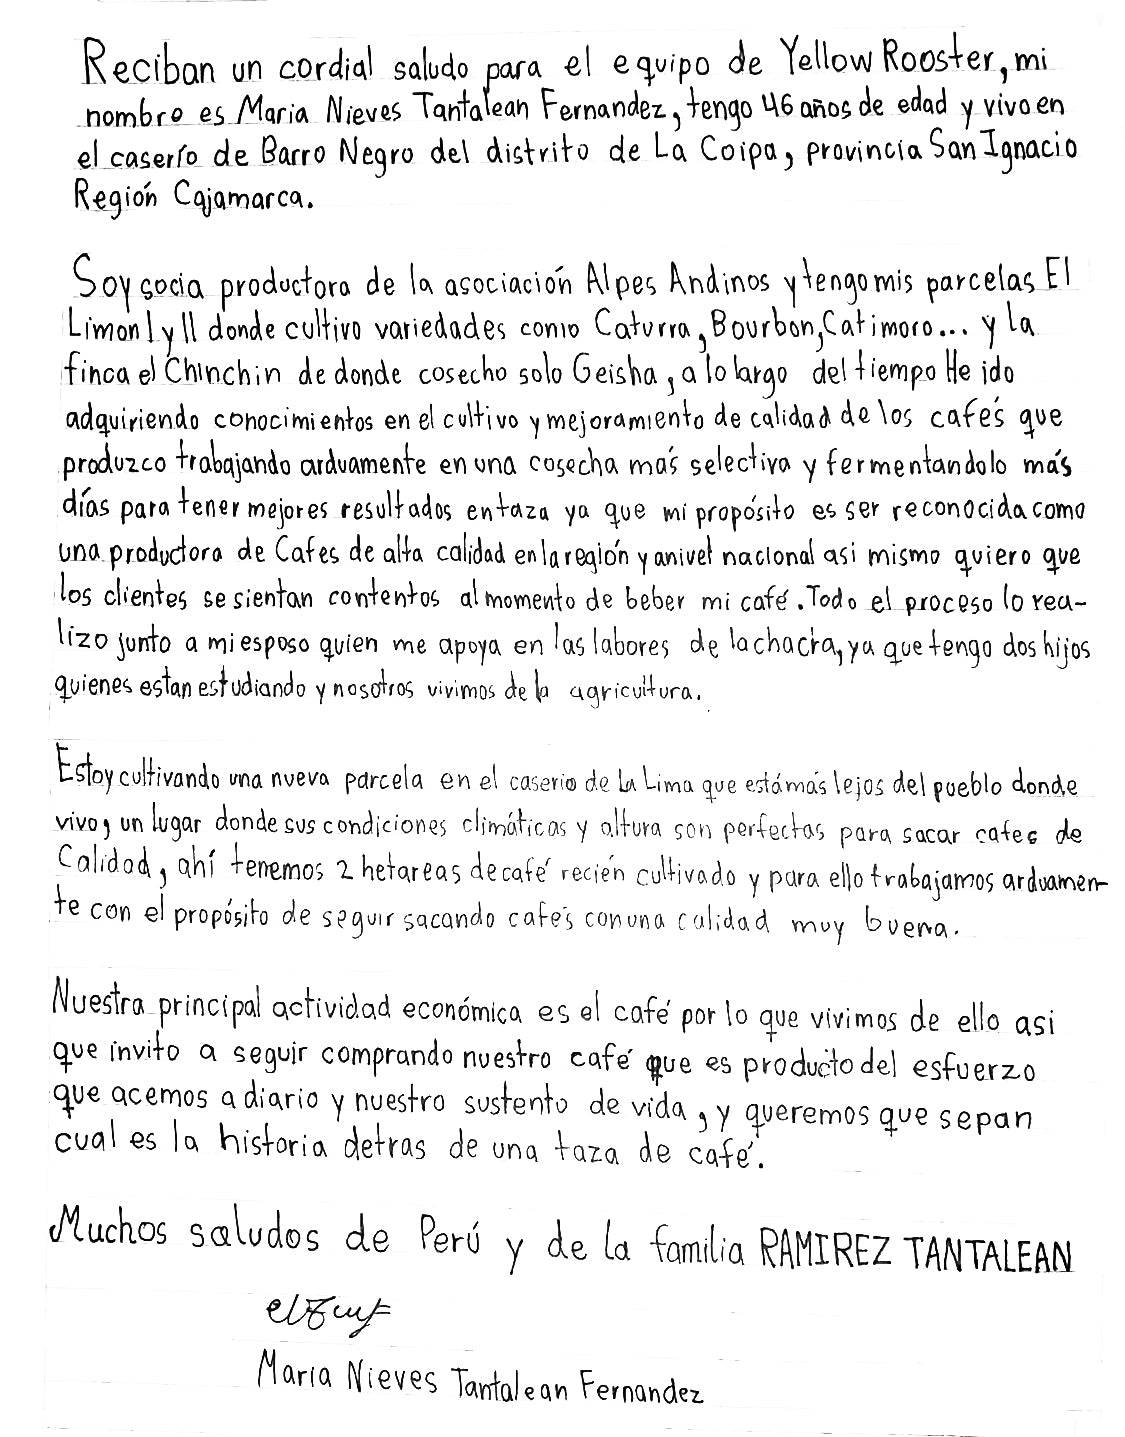 Reciban un cordial saludo para el equipo de Yellow Rooster, mi
nombre es Maria Nieves Tantalean Fernandez, tengo 46 años de edad y vivo en
el caserío de Barro Negro del distrito de La Coipa, provincia San Ignacio
Región Cajamarca.
Soy socia productora de la asociación Alpes Andinos y tengo mis parcelas El
Limon I y II donde cultivo variedades como Caturra, Bourbon, Catimoro... y la
finca el Chinchin de donde cosecho solo Geisha, a lo largo del tiempo He ido
adquiriendo conocimientos en el cultivo y mejoramiento de calidad de los cafés que
produzco trabajando arduamente en una cosecha más selectiva y fermentandolo más
días para tener mejores resultados en taza ya que mi propósito es ser reconocida como
una productora de Cafes de alta calidad en la región y a nivel nacional asi mismo quiero que
los clientes se sientan contentos al momento de beber mi café. Todo el proceso lo rea-
lizo junto a mi esposo quien me apoya en las labores de la chacra, ya que tengo dos hijos
quienes estan estudiando y nosotros vivimos de la agricultura.
Estoy cultivando una nueva parcela en el caserio de la Lima que está más lejos del pueblo donde
vivo, un lugar donde sus condiciones climáticas y altura son perfectas para sacar cafes de
Calidad, ahí tenemos 2 hetareas de café recién cultivado y para ello trabajamos arduamen-
te con el propósito de seguir sacando cafés con una calidad muy buena.
Nuestra principal actividad económica es el café por lo que vivimos de ello asi
que invito a seguir comprando nuestro café que es producto del esfuerzo
que acemos a diario y nuestro sustento de vida, y queremos que sepan
cual es la historia detras de una taza de café.
Muchos saludos de Perú y de la familia RAMIREZ TANTALEAN
Maria Nieves Tantalean Fernandez